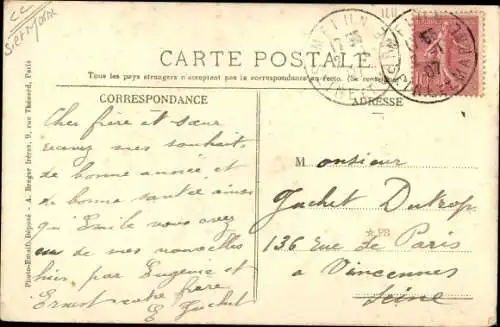 CC
S et Marne
CARTE POSTALE
Tous les pays étrangers n'acceptent pas la correspondance au recto. (Se renseigner
CORRESPONDANCE
ADRESSE
Cher frère et sœur
recevez mes souhaits
de bonne année et
de bonne santée ainsi
qu'Emile vous avez
eu de mes nouvelles
hier par Eugenie et
Ernest votre frère
E Guchet
M onsieur
Guchet Dutrop
136 rue de Paris
a Vincennes
Seine
MELUN
07
Photo-Email. Déposé - A. Breger frères, 9, rue Thénard, Paris